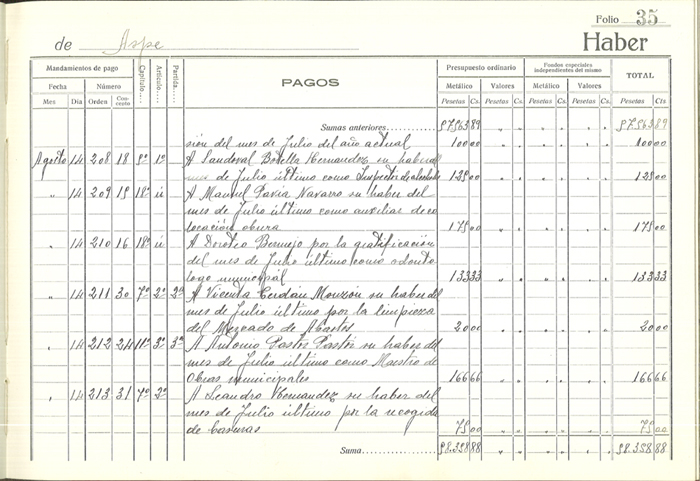 Folio 35
de Aspe
Haber
Mandamientos de pago Capítulo.... Artículo.... Partida.... PAGOS Presupuesto ordinario Fondos especiales independientes del mismo TOTAL
Fecha Número Metálico Valores Metálico Valores
Mes Día Orden Concepto Pesetas Cs. Pesetas Cs. Pesetas Cs. Pesetas Cs. Pesetas Cts
Sumas anteriores 97563 89 " " " " " " 97563 89
sion del mes de Julio del año actual 100 00 " " " " " " 100 00
Agosto 14 208 18 8º 1º A Sandoval Botella Hernandez su haber del
mes de Julio último como Inspector de alcoholes 125 00 " " " " " " 125 00
" 14 209 15 18º A Manuel Pavia Navarro su haber del
mes de Julio último como auxiliar de co
locación obrera 175 00 " " " " " " 175 00
" 14 210 16 18º A Doroteo Bermejo por la gratificación
del mes de Julio último como odonto
logo municipal 133 33 " " " " " " 133 33
" 14 211 30 7º 2º 2ª A Vicenta Cerdán Monzón su haber del
mes de Julio último por la limpieza
del Mercado de Abastos 20 00 " " " " " " 20 00
" 14 212 24 11º 3º 3ª A Antonio Pastor Pastor su haber del
mes de Julio último como Maestro de
Obras municipales 166 66 " " " " " " 166 66
" 14 213 31 7º 2º A Leandro Hernandez su haber del
mes de Julio último por la recogida
de basuras 75 00 " " " " " " 75 00
Suma 98.358 88 " " " " " " 98.358 88